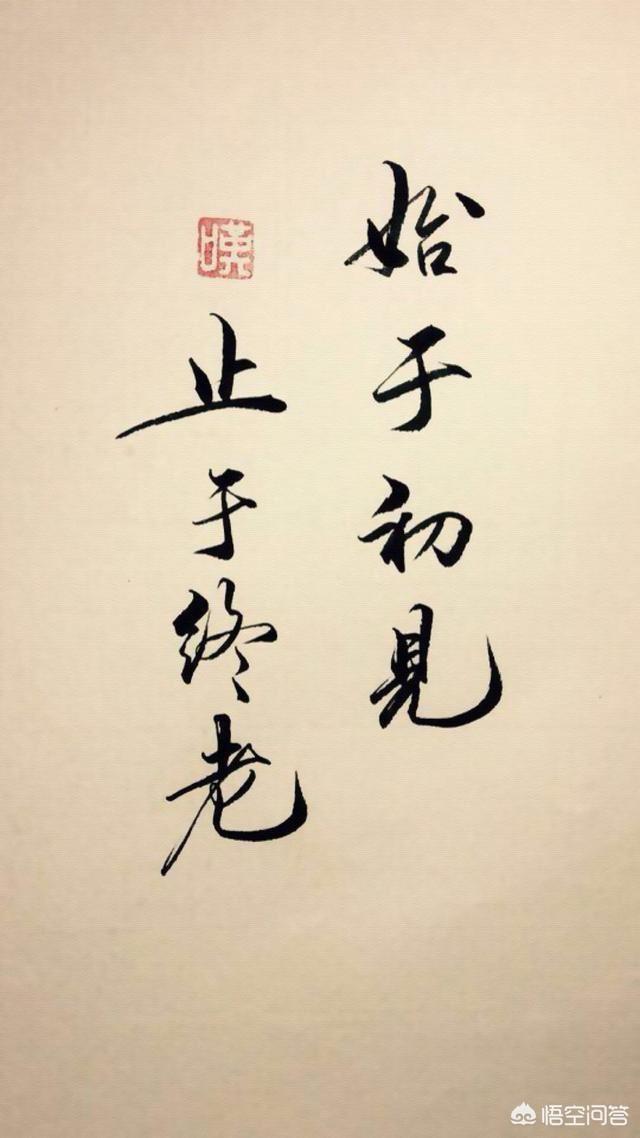 始于初見
止于终老
悟空问答